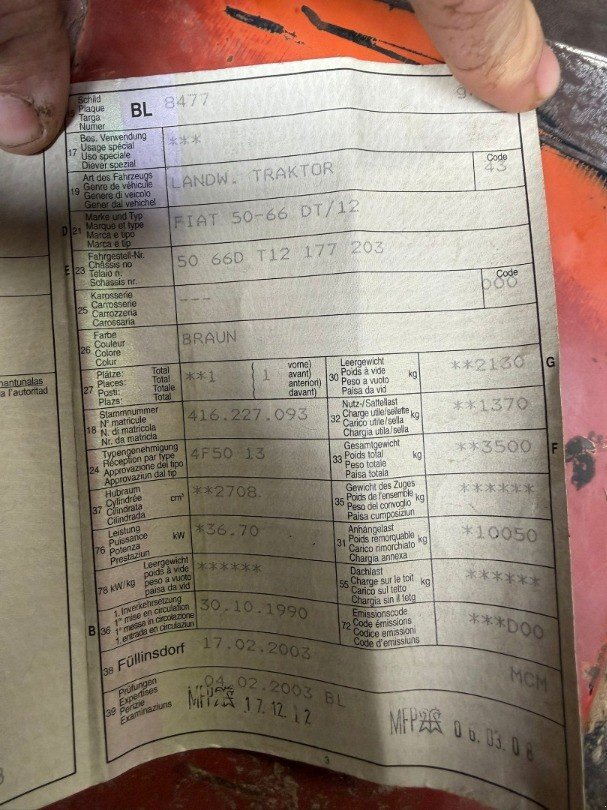 Schild
Plaque
Targa
Numer
BL 8477
17 Bes. Verwendung
Usage spécial
Uso speciale
Diever spezial
***
19 Art des Fahrzeugs
Genre de véhicule
Genere di veicolo
Gener dal vehichel
LANDW. TRAKTOR
Code
43
D 21 Marke und Typ
Marque et type
Marca e tipo
Marca e tip
FIAT 50-66 DT/12
E 23 Fahrgestell-Nr.
Châssis no
Telaio n.
Schassis nr.
50 66D T12 177 203
25 Karosserie
Carrosserie
Carrozzeria
Carossaria
---
Code
000
26 Farbe
Couleur
Colore
Colur
BRAUN
27 Plätze: Total
Places: Total
Posti: Totale
Plazs: Total
**1 ( 1 vorne)
avant)
anteriori)
davant)
30 Leergewicht
Poids à vide
Peso a vuoto
Paisa da vid
kg
**2130
G
18 Stammnummer
N° matricule
N. di matricola
Nr. da matricla
416.227.093
32 Nutz-/Sattellast
Charge utile/sellette
Carico utile/sella
Chargia utila/sella
kg
**1370
24 Typengenehmigung
Réception par type
Approvazione del tipo
Approvaziun dal tip
4F50 13
33 Gesamtgewicht
Poids total
Peso totale
Paisa totala
kg
**3500
F
37 Hubraum
Cylindrée
Cilindrata
Cilindrada
cm³
**2708.
35 Gewicht des Zuges
Poids de l'ensemble
Peso del convoglio
Paisa cumposiziun
kg
******
76 Leistung
Puissance
Potenza
Prestaziun
kW
*36.70
31 Anhängelast
Poids remorquable
Carico rimorchiato
Chargia annexa
kg
*10050
78 kW/kg Leergewicht
poids à vide
peso a vuoto
paisa da vid
******
55 Dachlast
Charge sur le toit
Carico sul tetto
Chargia sin il tetg
kg
******
B 36 1. Inverkehrsetzung
1re mise en circulation
1a messa in circolazione
1. entrada en circulaziun
30.10.1990
72 Emissionscode
Code émissions
Codice emissioni
Code d'emissiuns
***D00
38 Füllinsdorf 17.02.2003
MCM
39 Prüfungen
Expertises
Perizie
Examinaziuns
04.02.2003 BL
MFP 17.12.12
MFP 06.03.08
3